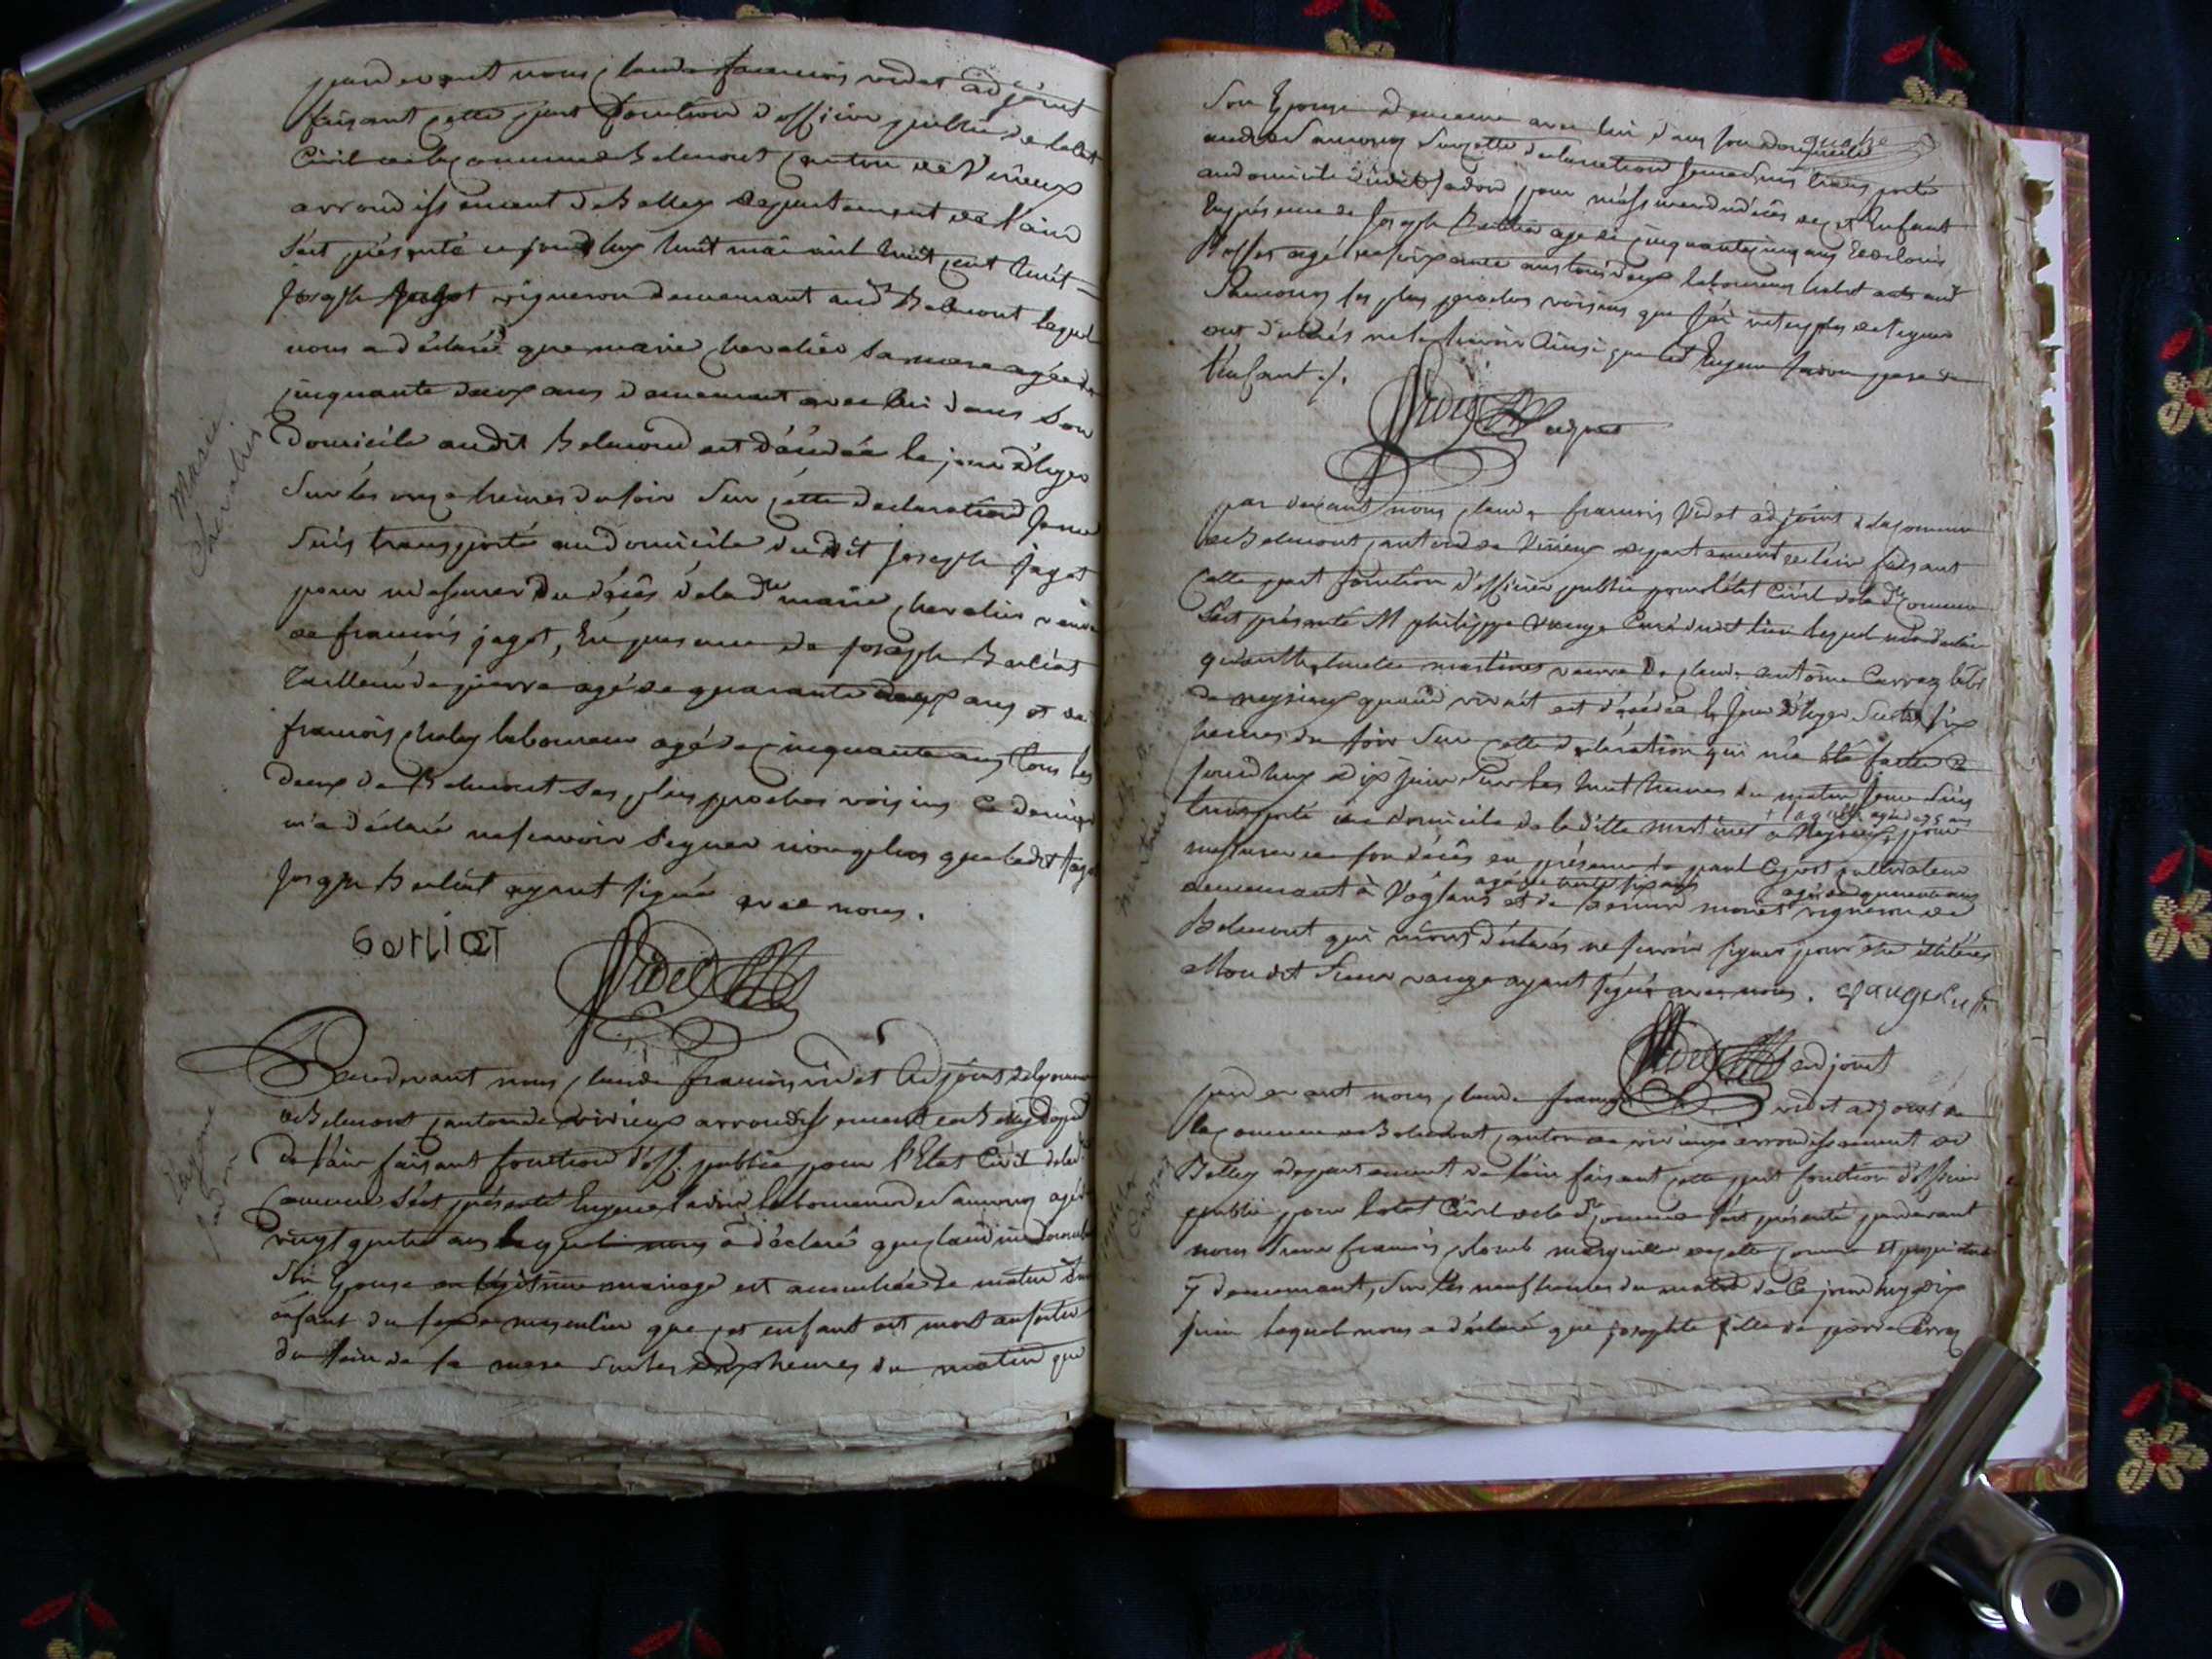 par devant nous Claude francois videt adjoint
faisant cette part fonction d'officier public de letat
Civil de la Commune de Belmont Canton de Virieux
arrondissement de Belley departement de l'ain
s'est présenté ce jourdhuy huit mai mil huit cent huit
Joseph Jagot vigneron demeurant aud Belmont lequel
nous a déclaré que marie Chevalier sa mere agée de
cinquante deux ans demeurant avec lui dans son
domicile audit Belmond est décédée le jour d'hyer
Sur les onze heures du soir Sur cette declaration Je me
Suis transporté au domicile dudit Joseph Jagot
pour m'assurer du décès de la dte marie Chevalier veuve
de francois jagot, En presence de Joseph Barliet
Tailleur de pierre agé de quarante deux ans et de
francois Chaley laboureur agé de cinquante ans tous les
deux de Belmont Ses plus proches voisins Ce dernier
m'a déclaré ne scavoir Signer non plus que ledit Jagot
Joseph Barliet ayant signé avec nous.
Marie
Chevalier
barliet
Videt
Pardevant nous Claude francois videt Adjoint de la commune
de Belmont Canton de virieux arrondissement de Belley Dept
de l'ain faisant fonction d'off. public pour l'Etat Civil de lad
Commune S'est présenté Eugene Jadon laboureur de Samonod agé de
vingt quatre ans lequel nous a déclaré que Claudine
Son Epouse en légitime mariage est accouchée ce matin d'un
enfant du sexe masculin que cet enfant est mort au sortir
du sein de sa mere Sur les deux heures du matin que
Eugene
Jadon
quatre
Son Epouse demeure avec lui dans son domicile
aud Samonod Sur cette declaration Je me suis transporté
au domicile dudit Jadon pour m'assurer du décès de cet Enfant
En présence de Joseph Berthier agé de cinquante cinq ans
agé de soixante ans tous deux laboureurs habitants aud
Samonod ses plus proches voisins que j'ai interpelés de signer
ont déclarés ne le scavoir Ainsi que led Eugene Jadon pere de
l'enfant ./.
Videt adjoint
par devant nous Claude francois Videt adjoint de la Commune
de Belmont Canton de Virieux departement de l'ain faisant
Cette part fonction d'officier public pour l'état Civil de la dte Commune
S'est présenté M philippe vauge Curé dudit lieu lequel m'a déclaré
martinet veuve De Claude antoine Carraz
quand vivait est décédée le Jour d'hyer Sur les six
heures du soir Sur cette declaration qui m'a été faite
jourdhuy dix juin Sur les huit heures du matin Je me Suis
transporté au domicile de la ditte martinet a pour
laquelle agée de 75 ans
m'assurer de son décès en présence de paul cultivateur
agé de trente six ans
agé de quarante ans
demeurant à Voglans et de monet vigneron de
Belmont qui m'ont déclarés ne scavoir signer pour être illitérés
Mondit Sieur vauge ayant signé avec nous. Vauge Curé
Videt adjoint
par devant nous Claude francois videt adjoint de
la Commune de Belmont Canton de virieux arrondissement de
Belley departement de l'ain faisant cette part fonction d'officier
public pour l'etat Civil de la dte Commune s'est présenté pardevant
nous Sieur francois marguillier de cette Commune et propriétaire
y demeurant, Sur les neuf heures du matin de Ce jourdhuy dix
juin lequel nous a déclaré que josephte fille de pierre Carraz